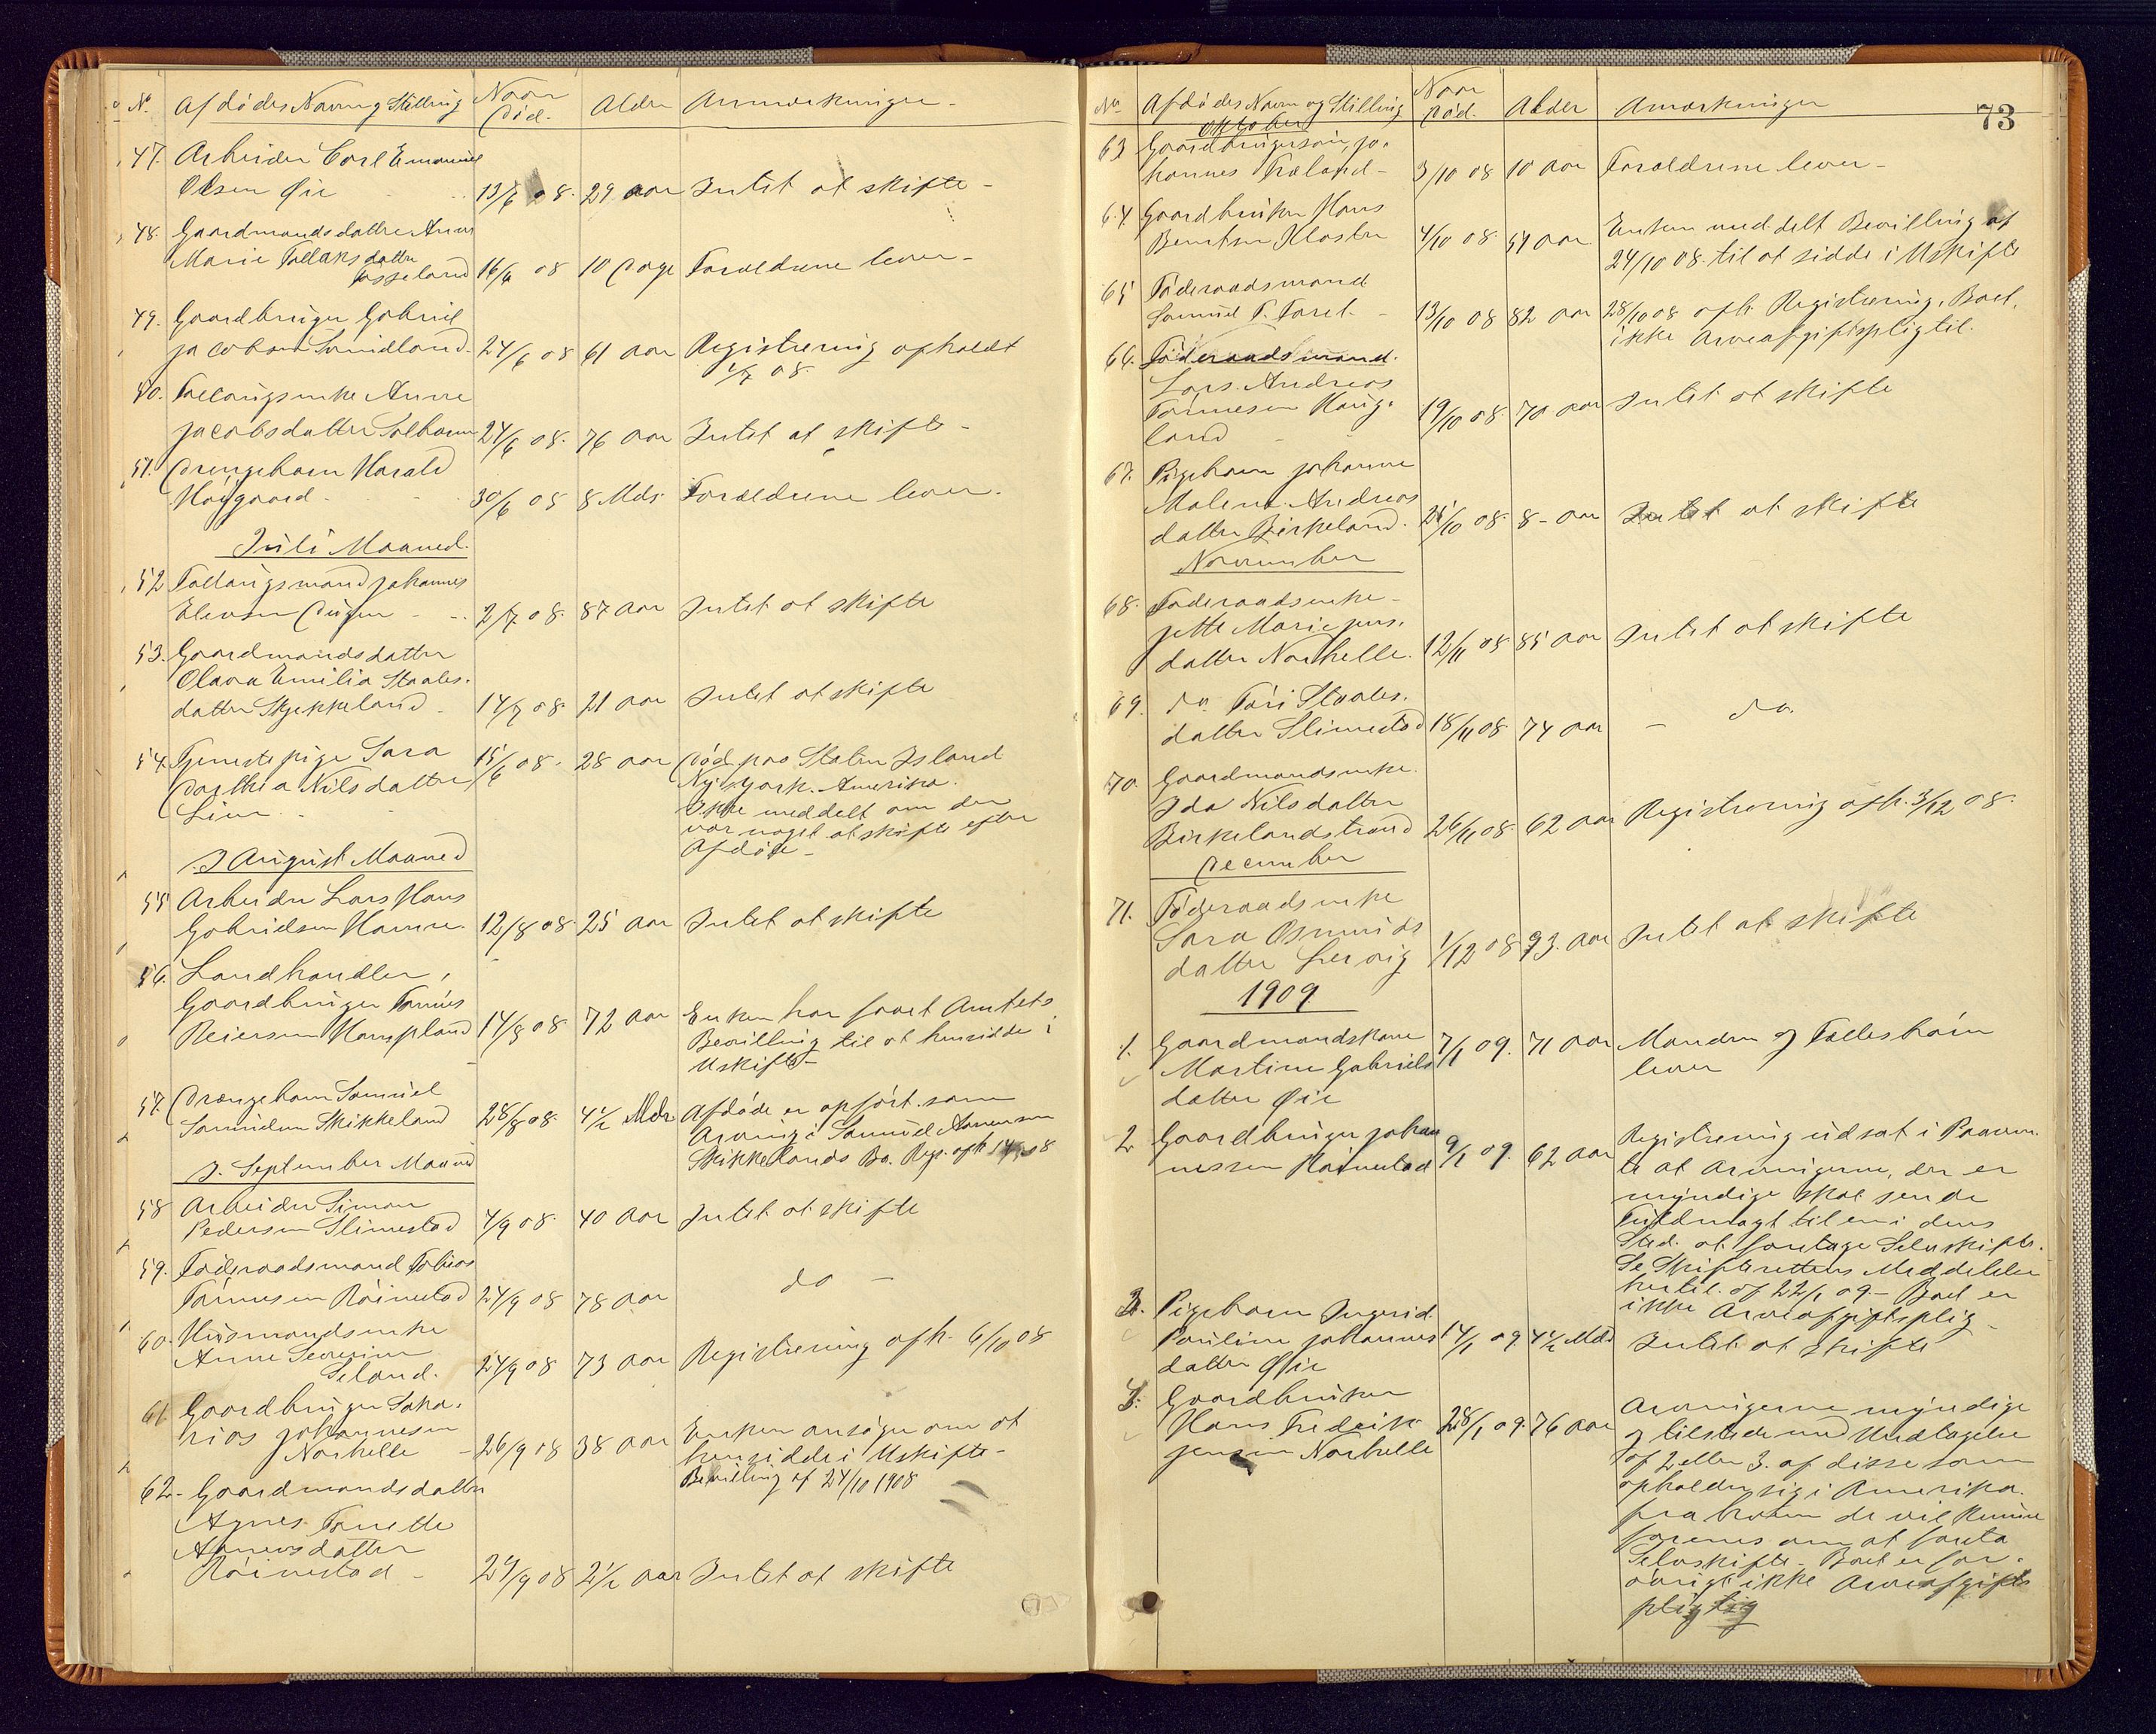 No. Afdødes Navn og Stilling Naar Død. Alder Anmærkninger
47. Arbeider Carl Emanuel
Olsen Øie 13/6 08. 29 aar Intet at skifte -
48. Gaardmandsdatter Anna
Marie Tallaksdatter
Fosseland 16/6 08 10 Dage Forældrene lever -
49. Gaardbruger Gabriel
Jacobsen Sandland 24/6 08 61 aar Registrering afholdt
1/7 08.
50. Foellaugsenke Anne
Jacobsdatter 24/6 08. 76 aar Intet at skifte -
51. Drengebarn Harald
Høigaard - 30/6 08 8 Mdr Forældrene lever.
Juli Maaned.
52 Follaugsmand Johannes
Elevsen 2/7 08. 87 aar Intet at skifte
53. Gaardmandsdatter
Olava Emilia Staales.
datter Skjekkeland 14/7 08. 21 aar Intet at skifte
54. Tjenestepige Sara
Dorthea Nilsdatter
Lian 15/6 08. 28 aar Død paa Staten Island
Ny York. Amerika.
Ikke meddelt om der
var noget at skifte efter
Afdøde -
I August Maaned
55 Arbeider Lars Hans
Gabrielsen Hamre. 12/8 08. 25 aar Intet at skifte
56. Landhandler,
Gaardbruger Tønnes
Reiersen Kampland 14/8 08 72 aar Enken har faaet Amtets
Bevilling til at hensidde i
Uskifte -
57. Drengebarn Samuel
Samuelsen Skikkeland 28/8 08. 4 1/2 Mdr Afdøde er opført som
Arving i Samuel Asmensen
Skikkelands Bo. Reg. afh
I. September Maaned
58 Arbeider Simon
Pedersen Slimestad 4/9 08. 40 aar Intet at skifte
59. Føderaadsmand Tobias
Tønnesen Røinestad 24/9 08 78 aar do -
60. Husmandsenke
Anne Severine
Seland. 24/9 08 73 aar Registrering afh. 6/10 08
61 Gaardbruger Saka.
rias Johannesen
Norhelle - 26/9 08 38 aar Enken ansøger om at
hensidde i Uskifte -
Bevilling af 24/10 1908
62 - Gaardmandsdatter
Agnes Tomette
Asmensdatter
Røinestad - 24/9 08 2 1/2 aar Intet at skifte
73
No. Afdødes Navn og Stilling Naar Død. Alder Anmærkninger
Oktober
63 Gaardbrugersøn, Jo.
hannes Træland - 3/10 08 10 aar Forældrene lever -
64. Gaardbruker Hans
Berntsen Kloster 4/10 08. 51 aar Enken meddelt Bevilling af
24/10 08. til at sidde i Uskifte
65 Føderaadsmand
Samuel T. Faret - 13/10 08 82 aar 28/10 08 afh. Registrering. Boet.
ikke Arveafgiftspligtil.
66. Føderaadsmand.
Lars Andreas
Tønnesen Haug.
land - 19/10 08. 70 aar Intet at skifte
67. Pigebarn Johanne
Malene Andreas
datter Birkeland. 21/10 08. 8 - aar Intet at skifte
November
68. Føderaadsenke -
Jette Marie Jens.
datter Norhelle. 12/11 08 85 aar Intet at skifte
69. do. Tori Staales.
datter Slimestad 18/11 08 74 aar - do.
70. Gaardmandsenke.
Ida Nilsdatter
Birkelandstrand 26/11 08. 62 aar Registrering afh. 3/12 08.
December
71. Føderaadsenke
Sara Osmunds
datter Lervig 1/12 08 93. aar Intet at skifte
1909
1. Gaardmandskone
Martine Gabriels
datter Øie 7/1 09. 71 aar Manden og Fællesbørn
lever
2. Gaardbruger Johan
nessen Røinestad 9/1 09. 62 aar Registrering udsat i Paaven.
te at Arvingerne, der er
myndige skal sende
Fuldmagt til en i deres
Sted. at foretage Selvskifte.
Se Skifterettens Meddelelse
hertil. af 22/1 09 - Boet er
ikke Arveafgiftsplig -
3. Pigebarn Ingerid.
Pauline Johannes
datter Øie 14/1 09. 4 1/2 Mdr Intet at skifte
4. Gaardbruker
Hans Fredrik
Jensen Norhelle 28/1 09. 76 aar Arvingerne myndige
og tilstede med Undtagelse
af 2 eller 3. af disse som
opholder sig i Amerika.
fra hvem de vil kunne
forenes om at foreta
Selvskifte - Boet er for.
øvrigt ikke Arveafgifts
pligtig